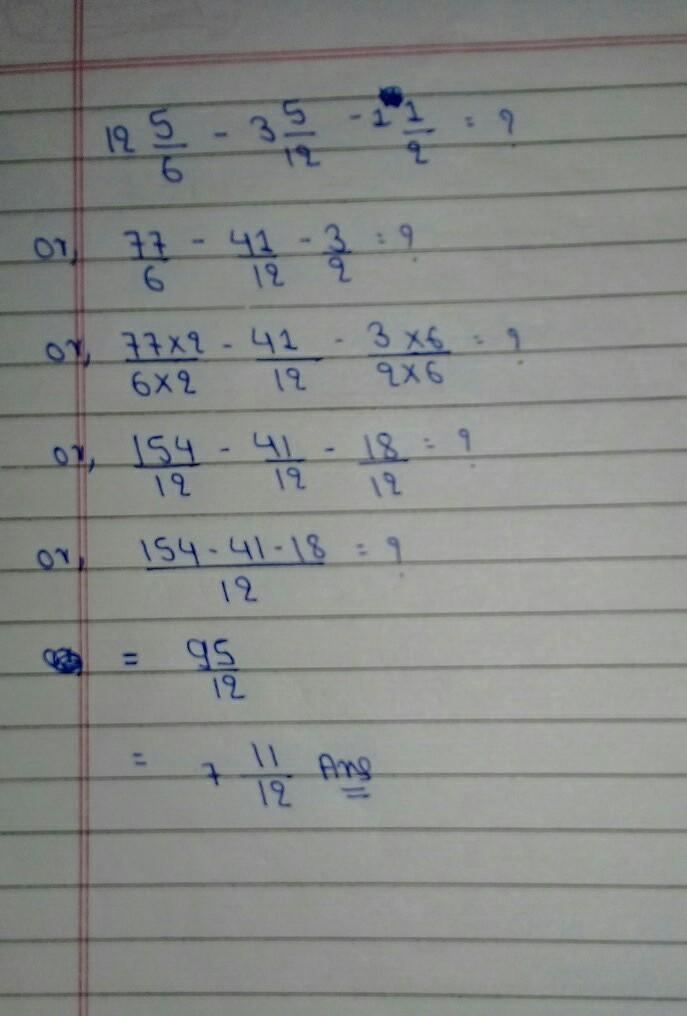 12 5/6 - 3 5/12 - 1 1/2 = ?
or, 77/6 - 41/12 - 3/2 = ?
or, 77×2/6×2 - 41/12 - 3×6/2×6 = ?
or, 154/12 - 41/12 - 18/12 = ?
or, 154-41-18/12 = ?
= 95/12
= 7 11/12 Ans